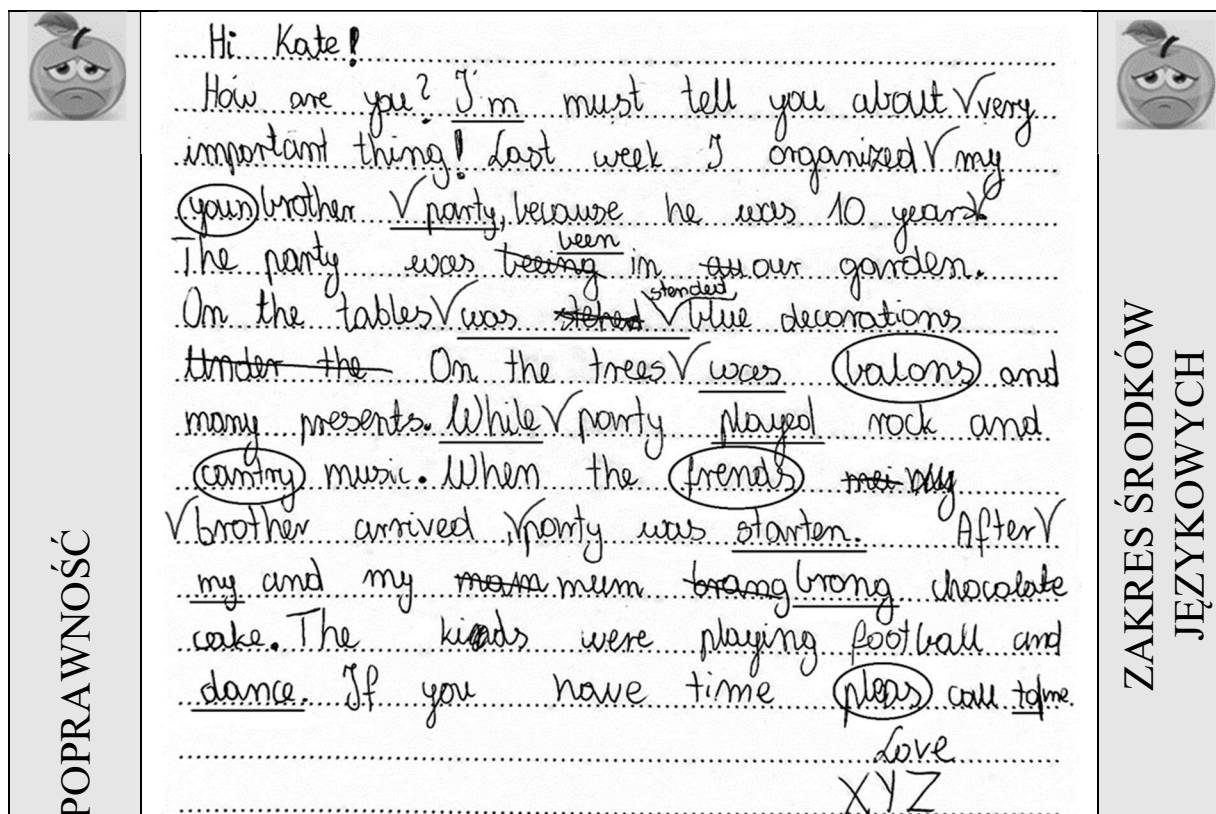 Hi Kate!
How are you? I'm must tell you about very
important thing! Last week I organized my
youn brother party, because he was 10 years.
The party was been in our garden.
On the tables was stended blue decorations
Under the On the trees was balons and
many presents. While party played rock and
cantry music. When the frends my
brother arrived, party was starten. After
my and my mum brong chocolate
cake. The kids were playing football and
dance. If you have time pleas call to me.
Love
XYZ
POPRAWNOŚĆ
ZAKRES ŚRODKÓW
JĘZYKOWYCH